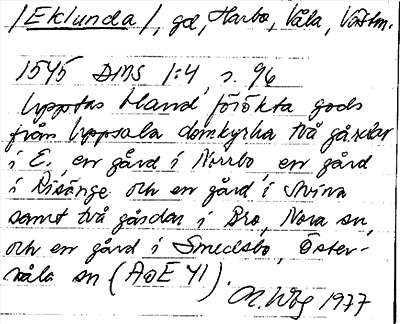 /Eklunda/, gd, Harbo, Våla, Västm.
1545 DMS 1:4, s. 96
Upptas bland försökta gods
från Uppsala domkyrka två gårdar
i E., en gård i Norrbo, en gård
i Risänge och en gård i
samt två gårdar i Bro, Nora sn,
och en gård i Smedsbo, Öster-
våla sn (AöE 41).
1977